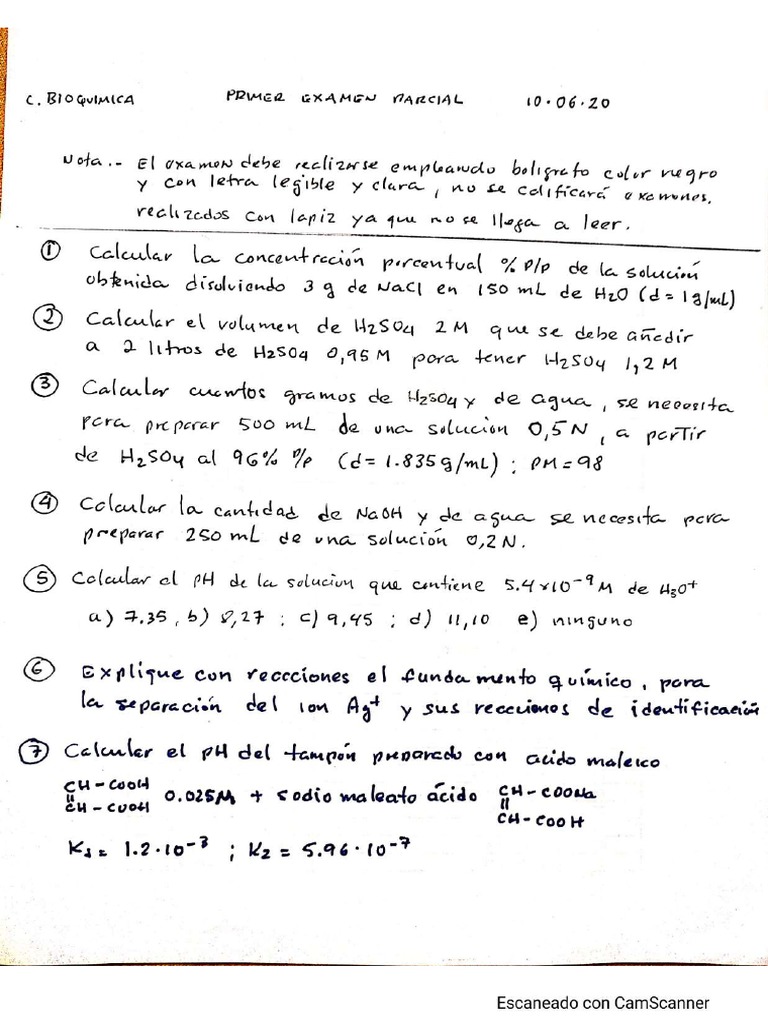 C. BIOQUIMICA PRIMER EXAMEN PARCIAL 10.06.20
Nota.- El examen debe realizarse empleando boligrafo color negro
y con letra legible y clara, no se calificará examenes.
realizados con lapiz ya que no se llega a leer.
① Calcular la concentración porcentual % p/p de la solución
obtenida disolviendo 3 g de NaCl en 150 mL de H2O (d = 1g/mL)
② Calcular el volumen de H2SO4 2M que se debe añadir
a 2 litros de H2SO4 0,95M para tener H2SO4 1,2M
③ Calcular cuantos gramos de H2SO4 y de agua, se necesita
para preparar 500 mL de una solución 0,5N, a partir
de H2SO4 al 96% P/p (d = 1.835g/mL) ; PM = 98
④ Calcular la cantidad de NaOH y de agua se necesita para
preparar 250 mL de una solución 0,2N.
⑤ Calcular el pH de la solucion que contiene 5.4x10⁻⁹M de H3O+
a) 7.35, b) 8,27 ; c) 9,45 ; d) 11,10 e) ninguno
⑥ Explique con reacciones el fundamento químico, para
la separación del ion Ag+ y sus reacciones de identificación
⑦ Calcular el pH del tampón preparado con acido maleico
CH-COOH
||
CH-COOH 0.025M + sodio maleato ácido CH-COONa
||
CH-COOH
K1 = 1.2·10⁻³ ; K2 = 5.96·10⁻⁷
Escaneado con CamScanner